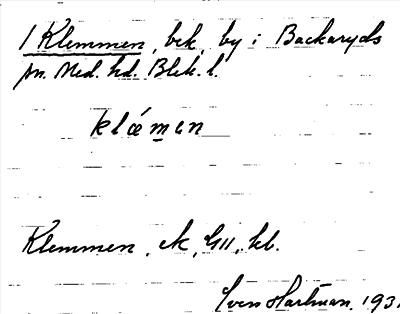 1 Klemmen, bek, by i Backaryds
sn. Med. hd. Blek. l.
klæmen
Klemmen, ek, G11, kl.
Sven Hartman. 193